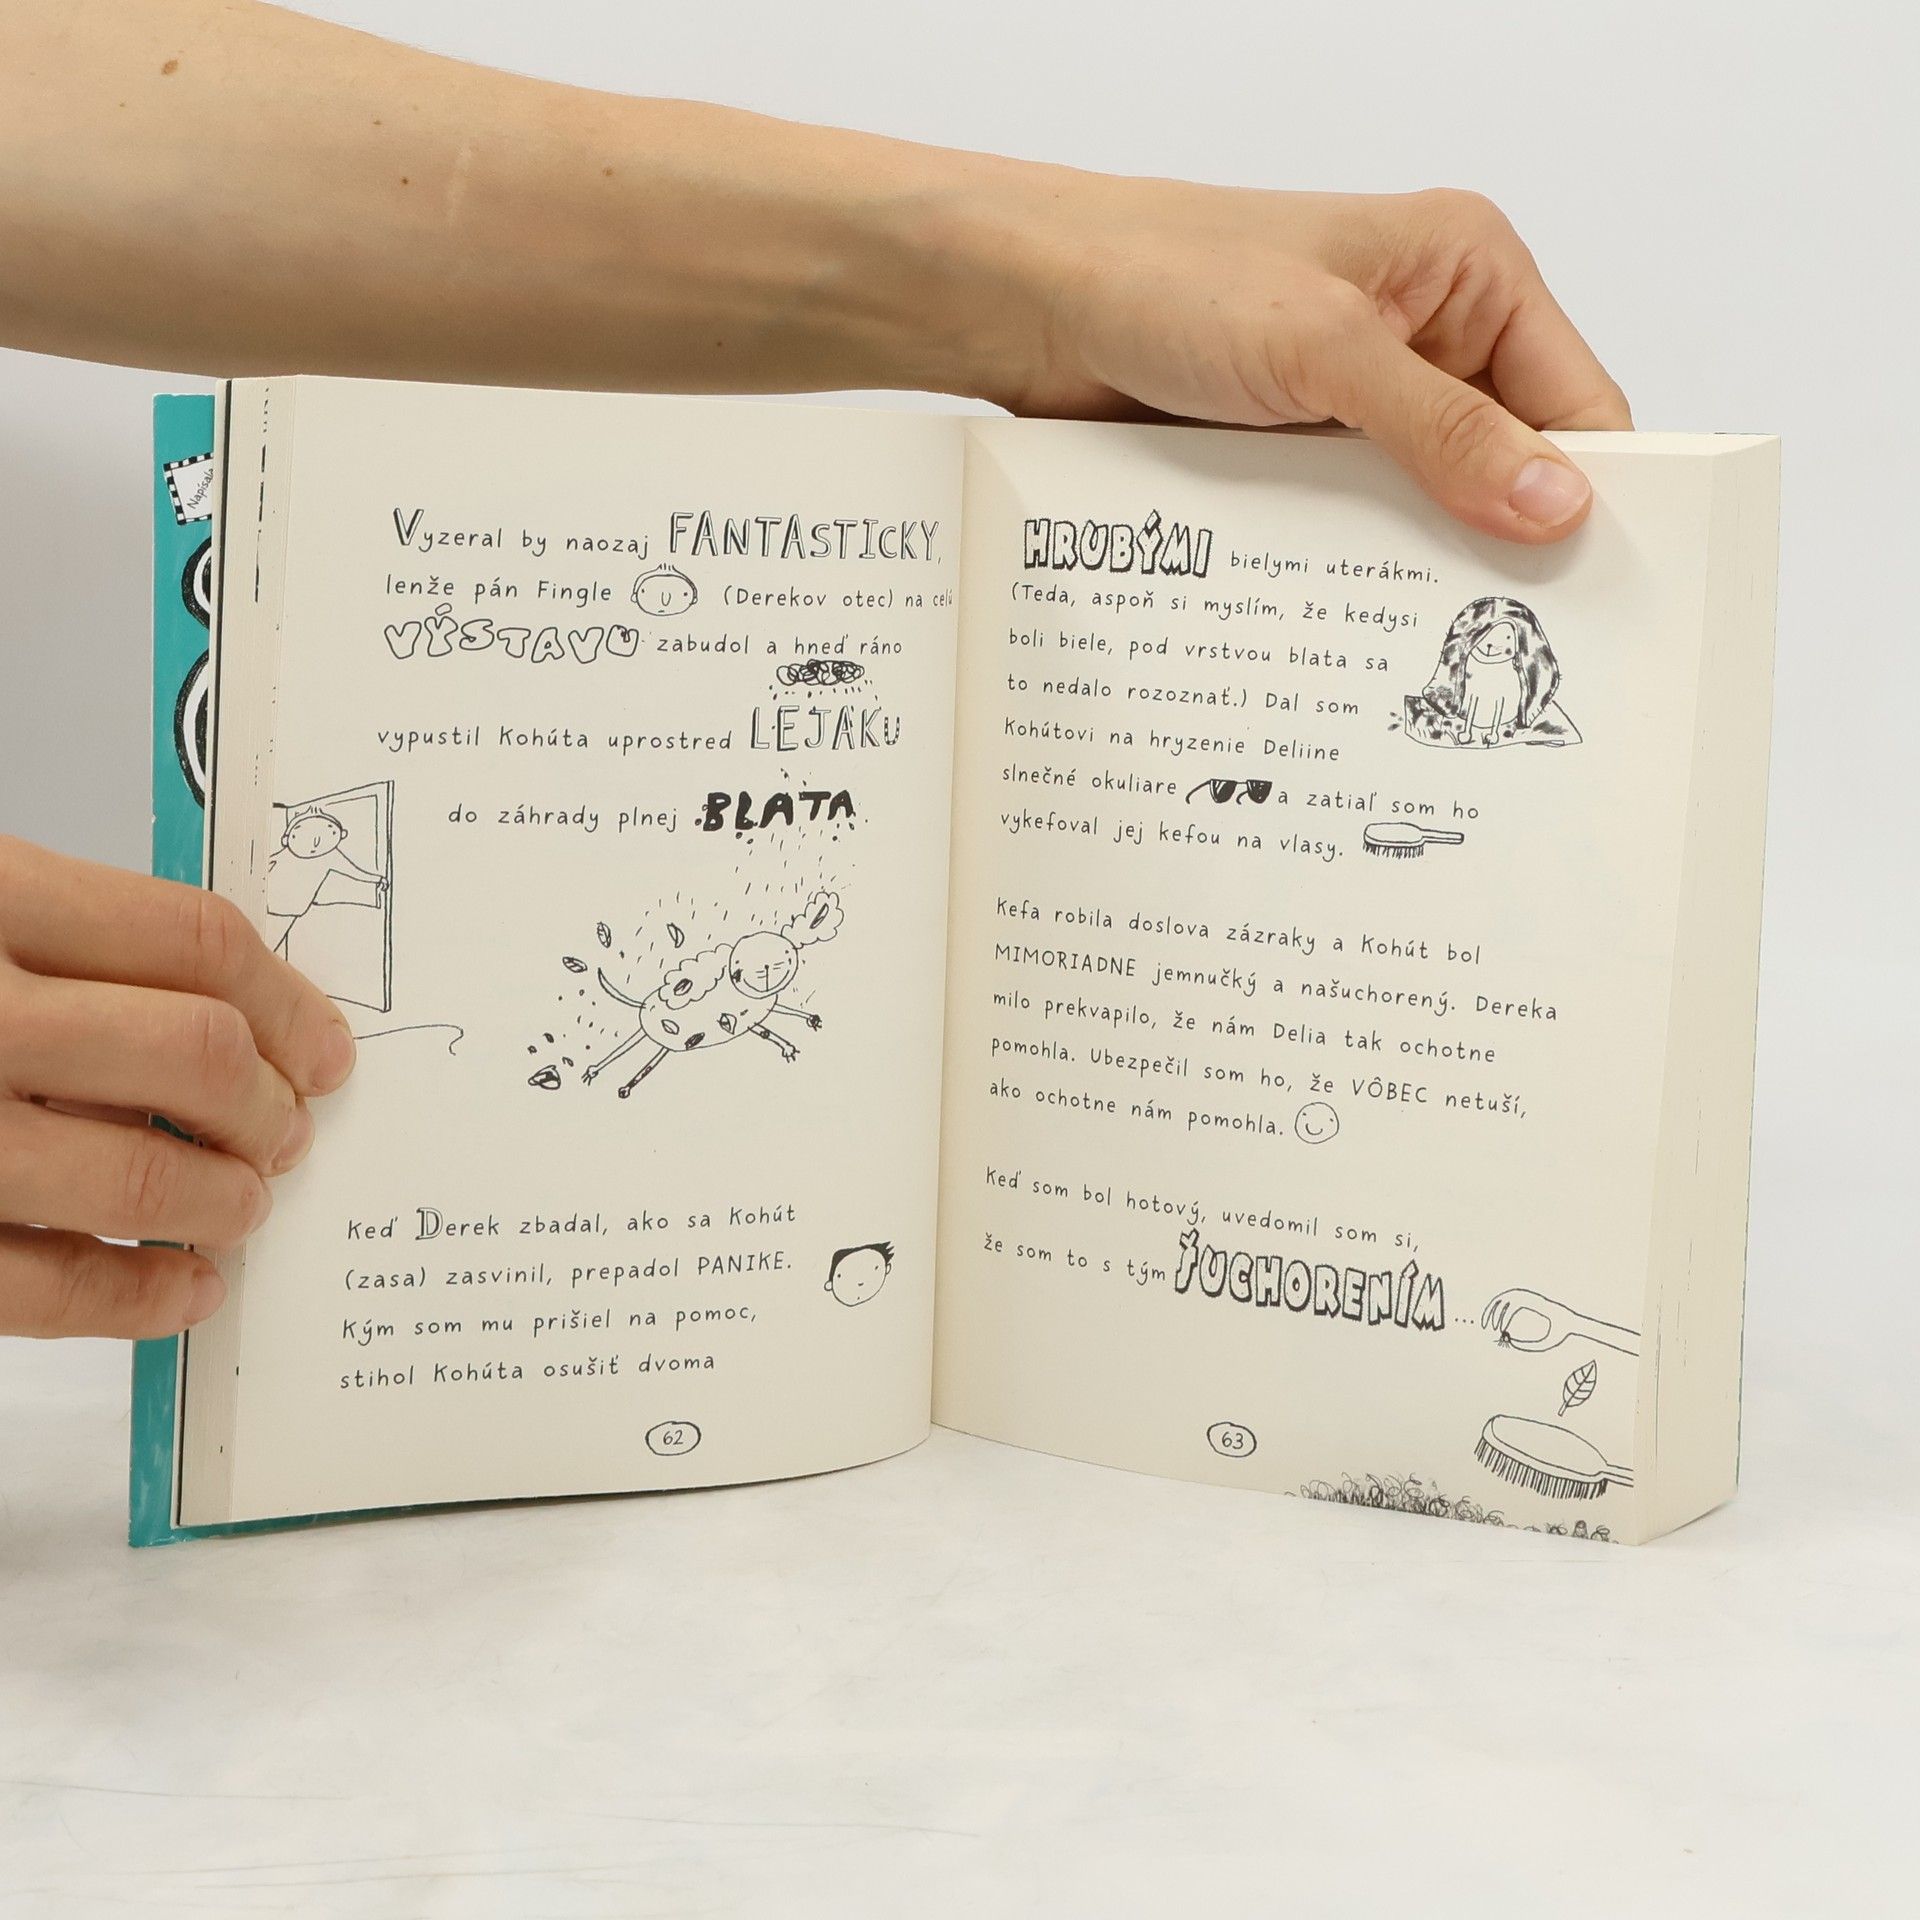 Napísala
Vyzeral by naozaj FANTASTICKY,
lenže pán Fingle (Derekov otec) na celú
VÝSTAVU zabudol a hneď ráno
vypustil Kohúta uprostred LEJAKU
do záhrady plnej BLATA.
Keď Derek zbadal, ako sa Kohút
(zasa) zasvinil, prepadol PANIKE.
Kým som mu prišiel na pomoc,
stihol Kohúta osušiť dvoma
62
HRUBÝMI bielymi uterákmi.
(Teda, aspoň si myslím, že kedysi
boli biele, pod vrstvou blata sa
to nedalo rozoznať.) Dal som
Kohútovi na hryzenie Deliine
slnečné okuliare a zatiaľ som ho
vykefoval jej kefou na vlasy.
Kefa robila doslova zázraky a Kohút bol
MIMORIADNE jemnučký a našuchorený. Dereka
milo prekvapilo, že nám Delia tak ochotne
pomohla. Ubezpečil som ho, že VÔBEC netuší,
ako ochotne nám pomohla.
Keď som bol hotový, uvedomil som si,
že som to s tým ŠUCHORENÍM...
63